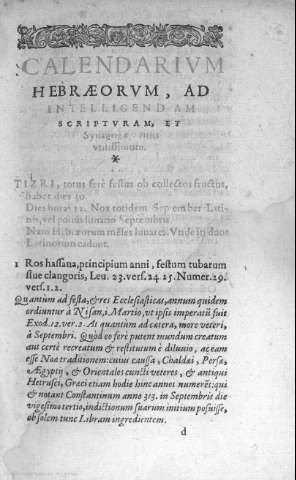 CALENDARIVM
HEBRÆORVM, AD
INTELLIGENDAM
SCRIPTVRAM, ET
Synagogæ ritus
vtilissimum.
*
TIZRI, totus ferè festus ob collectos fructus,
habet dies 30
Dies horas 12. Nox totidem September Lati-
nis, vel potius lunatio Septembris.
Nam Hebræorum mēses lunares. Vnde in duos
Latinorum cadunt.
1 Ros hassana, principium anni, festum tubarum
siue clangoris, Leu. 23. vers. 24 25. Numer. 29.
vers. 1. 2.
Quantùm ad festa, & res Ecclesiasticas, annum quidem
ordiuntur à Nisan, i. Martio, vt ipsis imperatū fuit
Exod. 12. ver. 2. At quantùm ad cætera, more veteri,
à Septembri. Quòd eo ferè putent mundum creatum
aut certè recreatum & restitutum è diluuio, ac eam
esse Noæ traditionem: cuius caussa, Chaldæi, Persæ,
Ægyptij, & Orientales cuncti veteres, & antiqui
Hetrusci, Græci etiam hodie hinc annos numerēt: qui
& notant Constantinum anno 313. in Septembris die
vigesimo tertio, indictionum suarum initium posuisse,
ob solem tunc Libram ingredientem.
d